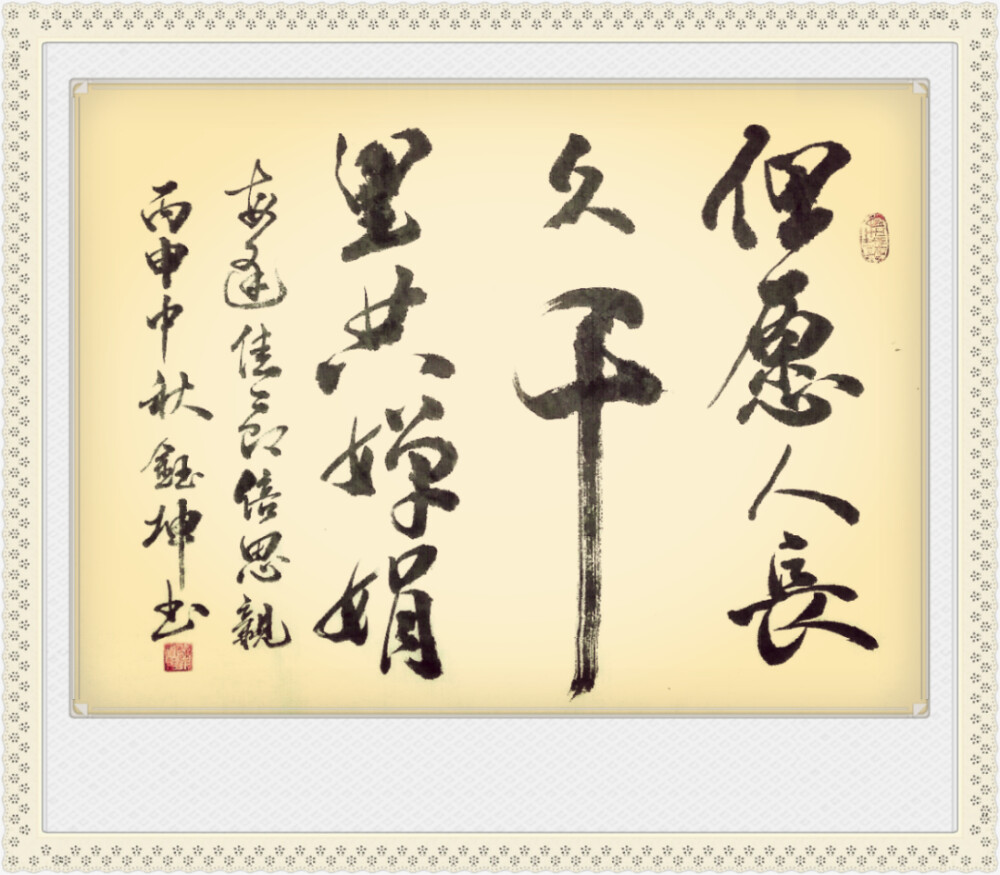 但愿人長
久千
里共嬋娟
每逢佳節倍思親
丙申中秋鈺坤书